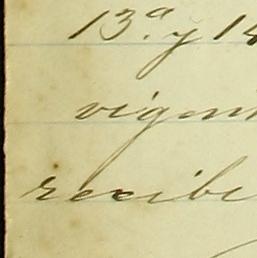 13.ª y 14
vigen
recibe